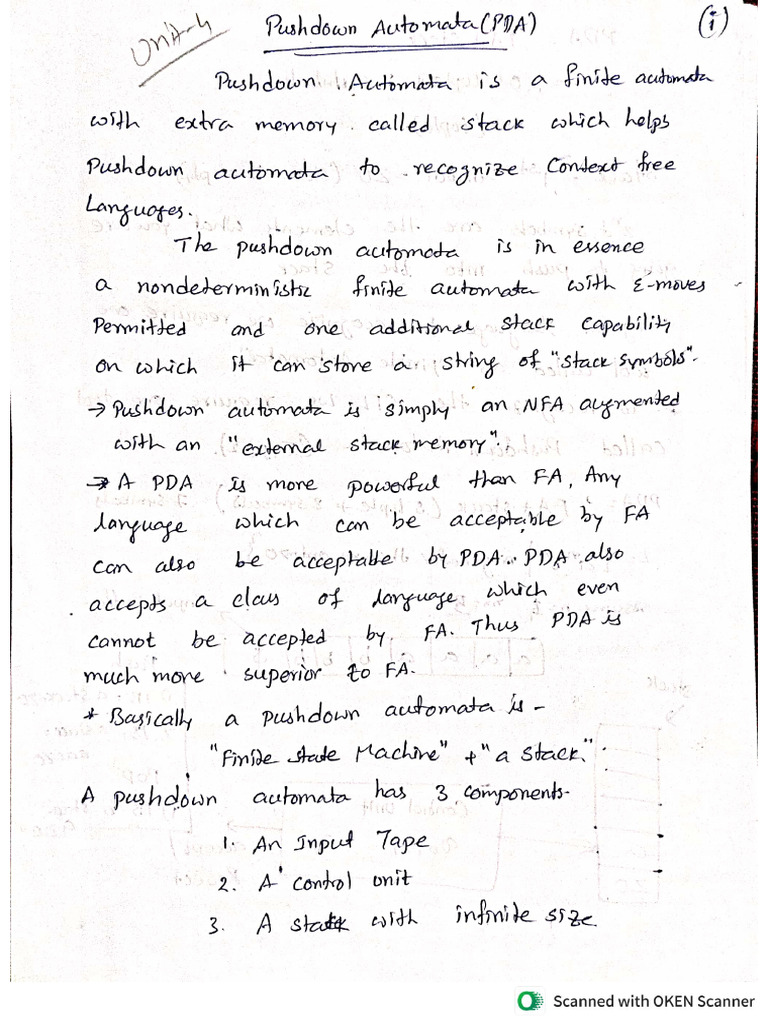 Unit-4
Pushdown Automata (PDA)
(i)
Pushdown Automata is a finite automata
with extra memory called stack which helps
Pushdown automata to recognize Context free
Languages.
The pushdown automata is in essence
a nondeterministic finite automata with ε-moves
Permitted and one additional stack capability
on which it can store a string of "stack symbols".
→ Pushdown automata is simply an NFA augmented
with an "external stack memory".
→ A PDA is more powerful than FA, Any
language which can be acceptable by FA
can also be acceptable by PDA. PDA also
accepts a class of language which even
cannot be accepted by FA. Thus PDA is
much more superior to FA.
* Basically a pushdown automata is -
"Finite state Machine" + "a stack."
A pushdown automata has 3 components-
1. An Input Tape
2. A control unit
3. A stack with infinite size.
Scanned with OKEN Scanner